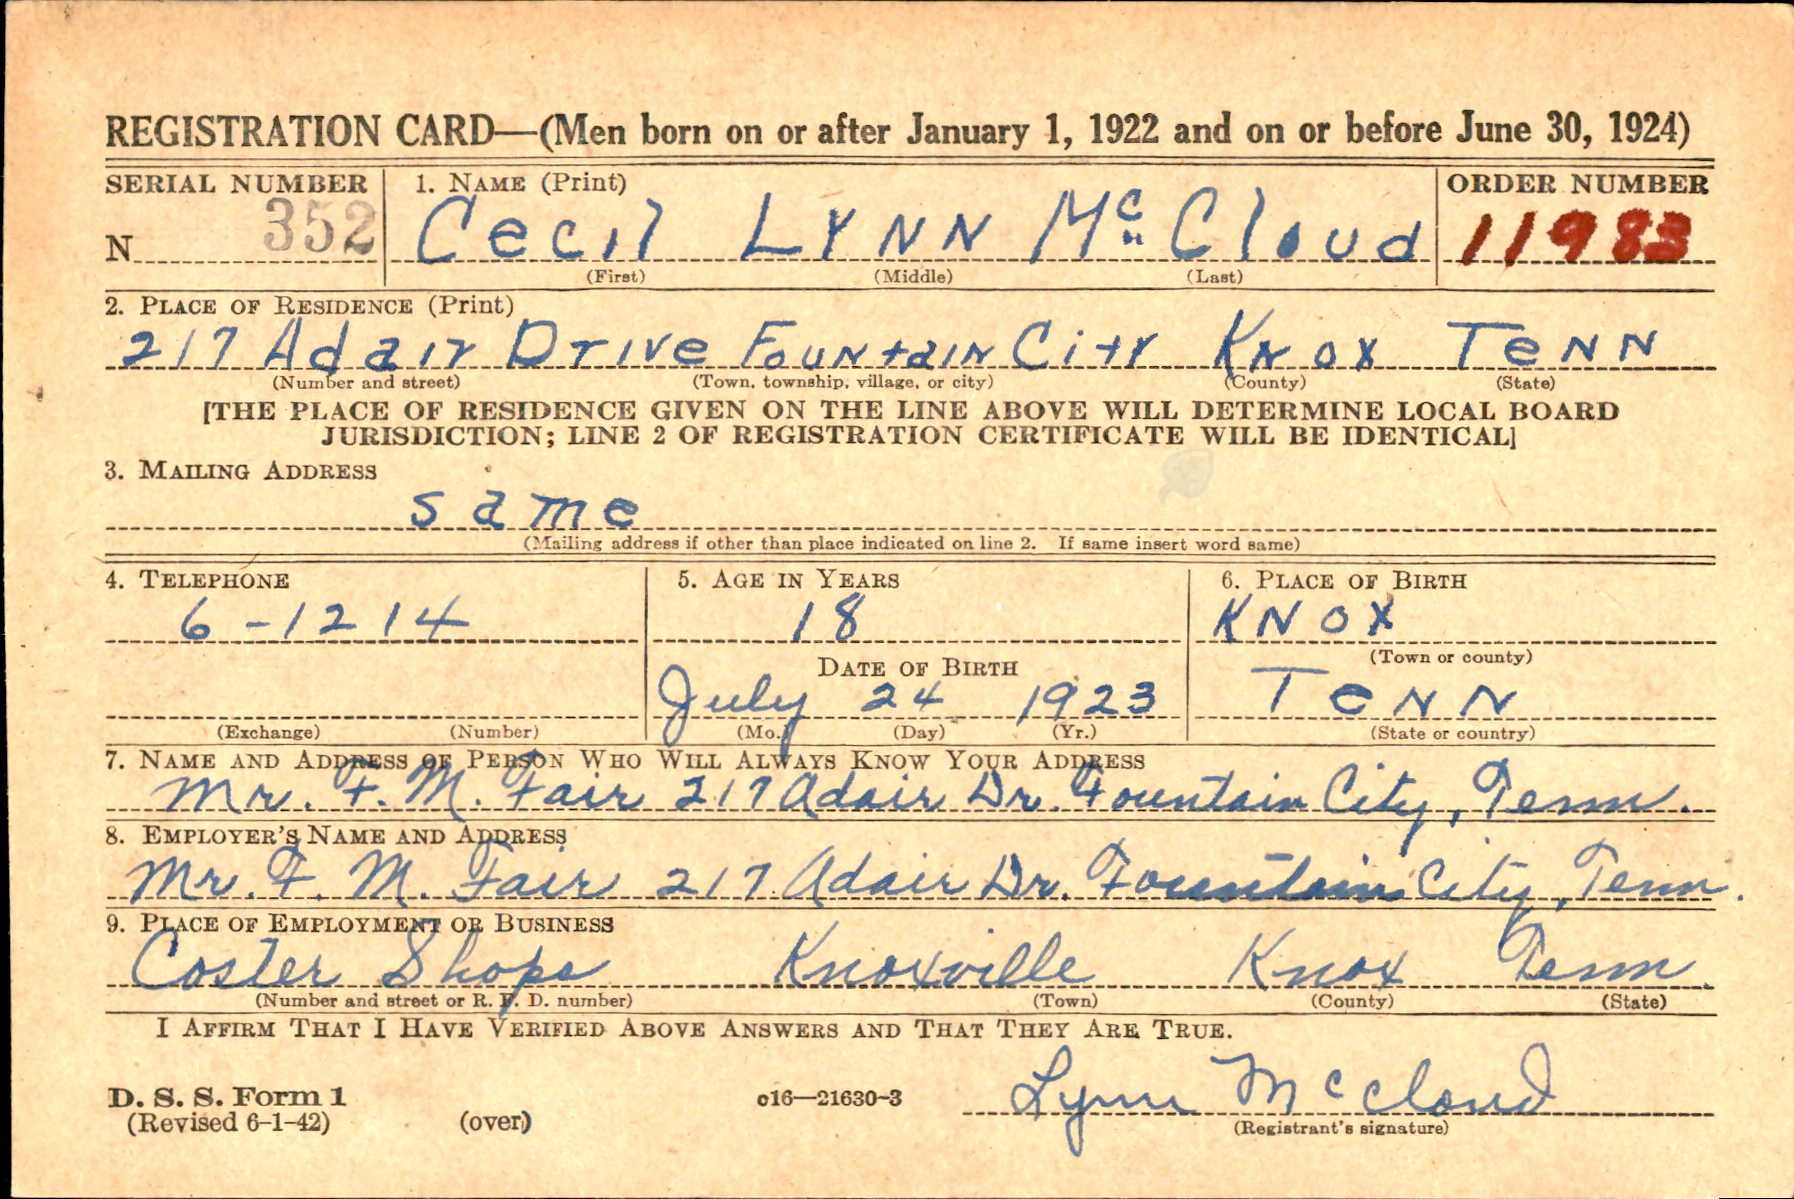 REGISTRATION CARD—(Men born on or after January 1, 1922 and on or before June 30, 1924)
SERIAL NUMBER 1. NAME (Print) ORDER NUMBER
N 352 Cecil LYNN McCloud 11983
(First) (Middle) (Last)
2. PLACE OF RESIDENCE (Print)
217 Adair Drive Fountain City Knox TeNN
(Number and street) (Town, township, village, or city) (County) (State)
[THE PLACE OF RESIDENCE GIVEN ON THE LINE ABOVE WILL DETERMINE LOCAL BOARD
JURISDICTION; LINE 2 OF REGISTRATION CERTIFICATE WILL BE IDENTICAL]
3. MAILING ADDRESS
same
(Mailing address if other than place indicated on line 2. If same insert word same)
4. TELEPHONE 5. AGE IN YEARS 6. PLACE OF BIRTH
6-1214 18 KNOX
DATE OF BIRTH (Town or county)
July 24 1923 TeNN
(Exchange) (Number) (Mo.) (Day) (Yr.) (State or country)
7. NAME AND ADDRESS OF PERSON WHO WILL ALWAYS KNOW YOUR ADDRESS
Mr. F. M. Fair 217 Adair Dr. Fountain City, Tenn.
8. EMPLOYER'S NAME AND ADDRESS
Mr. F. M. Fair 217 Adair Dr. Fountain City, Tenn.
9. PLACE OF EMPLOYMENT OR BUSINESS
Coster Shops Knoxville Knox Tenn.
(Number and street or R. F. D. number) (Town) (County) (State)
I AFFIRM THAT I HAVE VERIFIED ABOVE ANSWERS AND THAT THEY ARE TRUE.
D. S. S. Form 1 c16—21630-3 Lynn McCloud
(Revised 6-1-42) (over) (Registrant's signature)